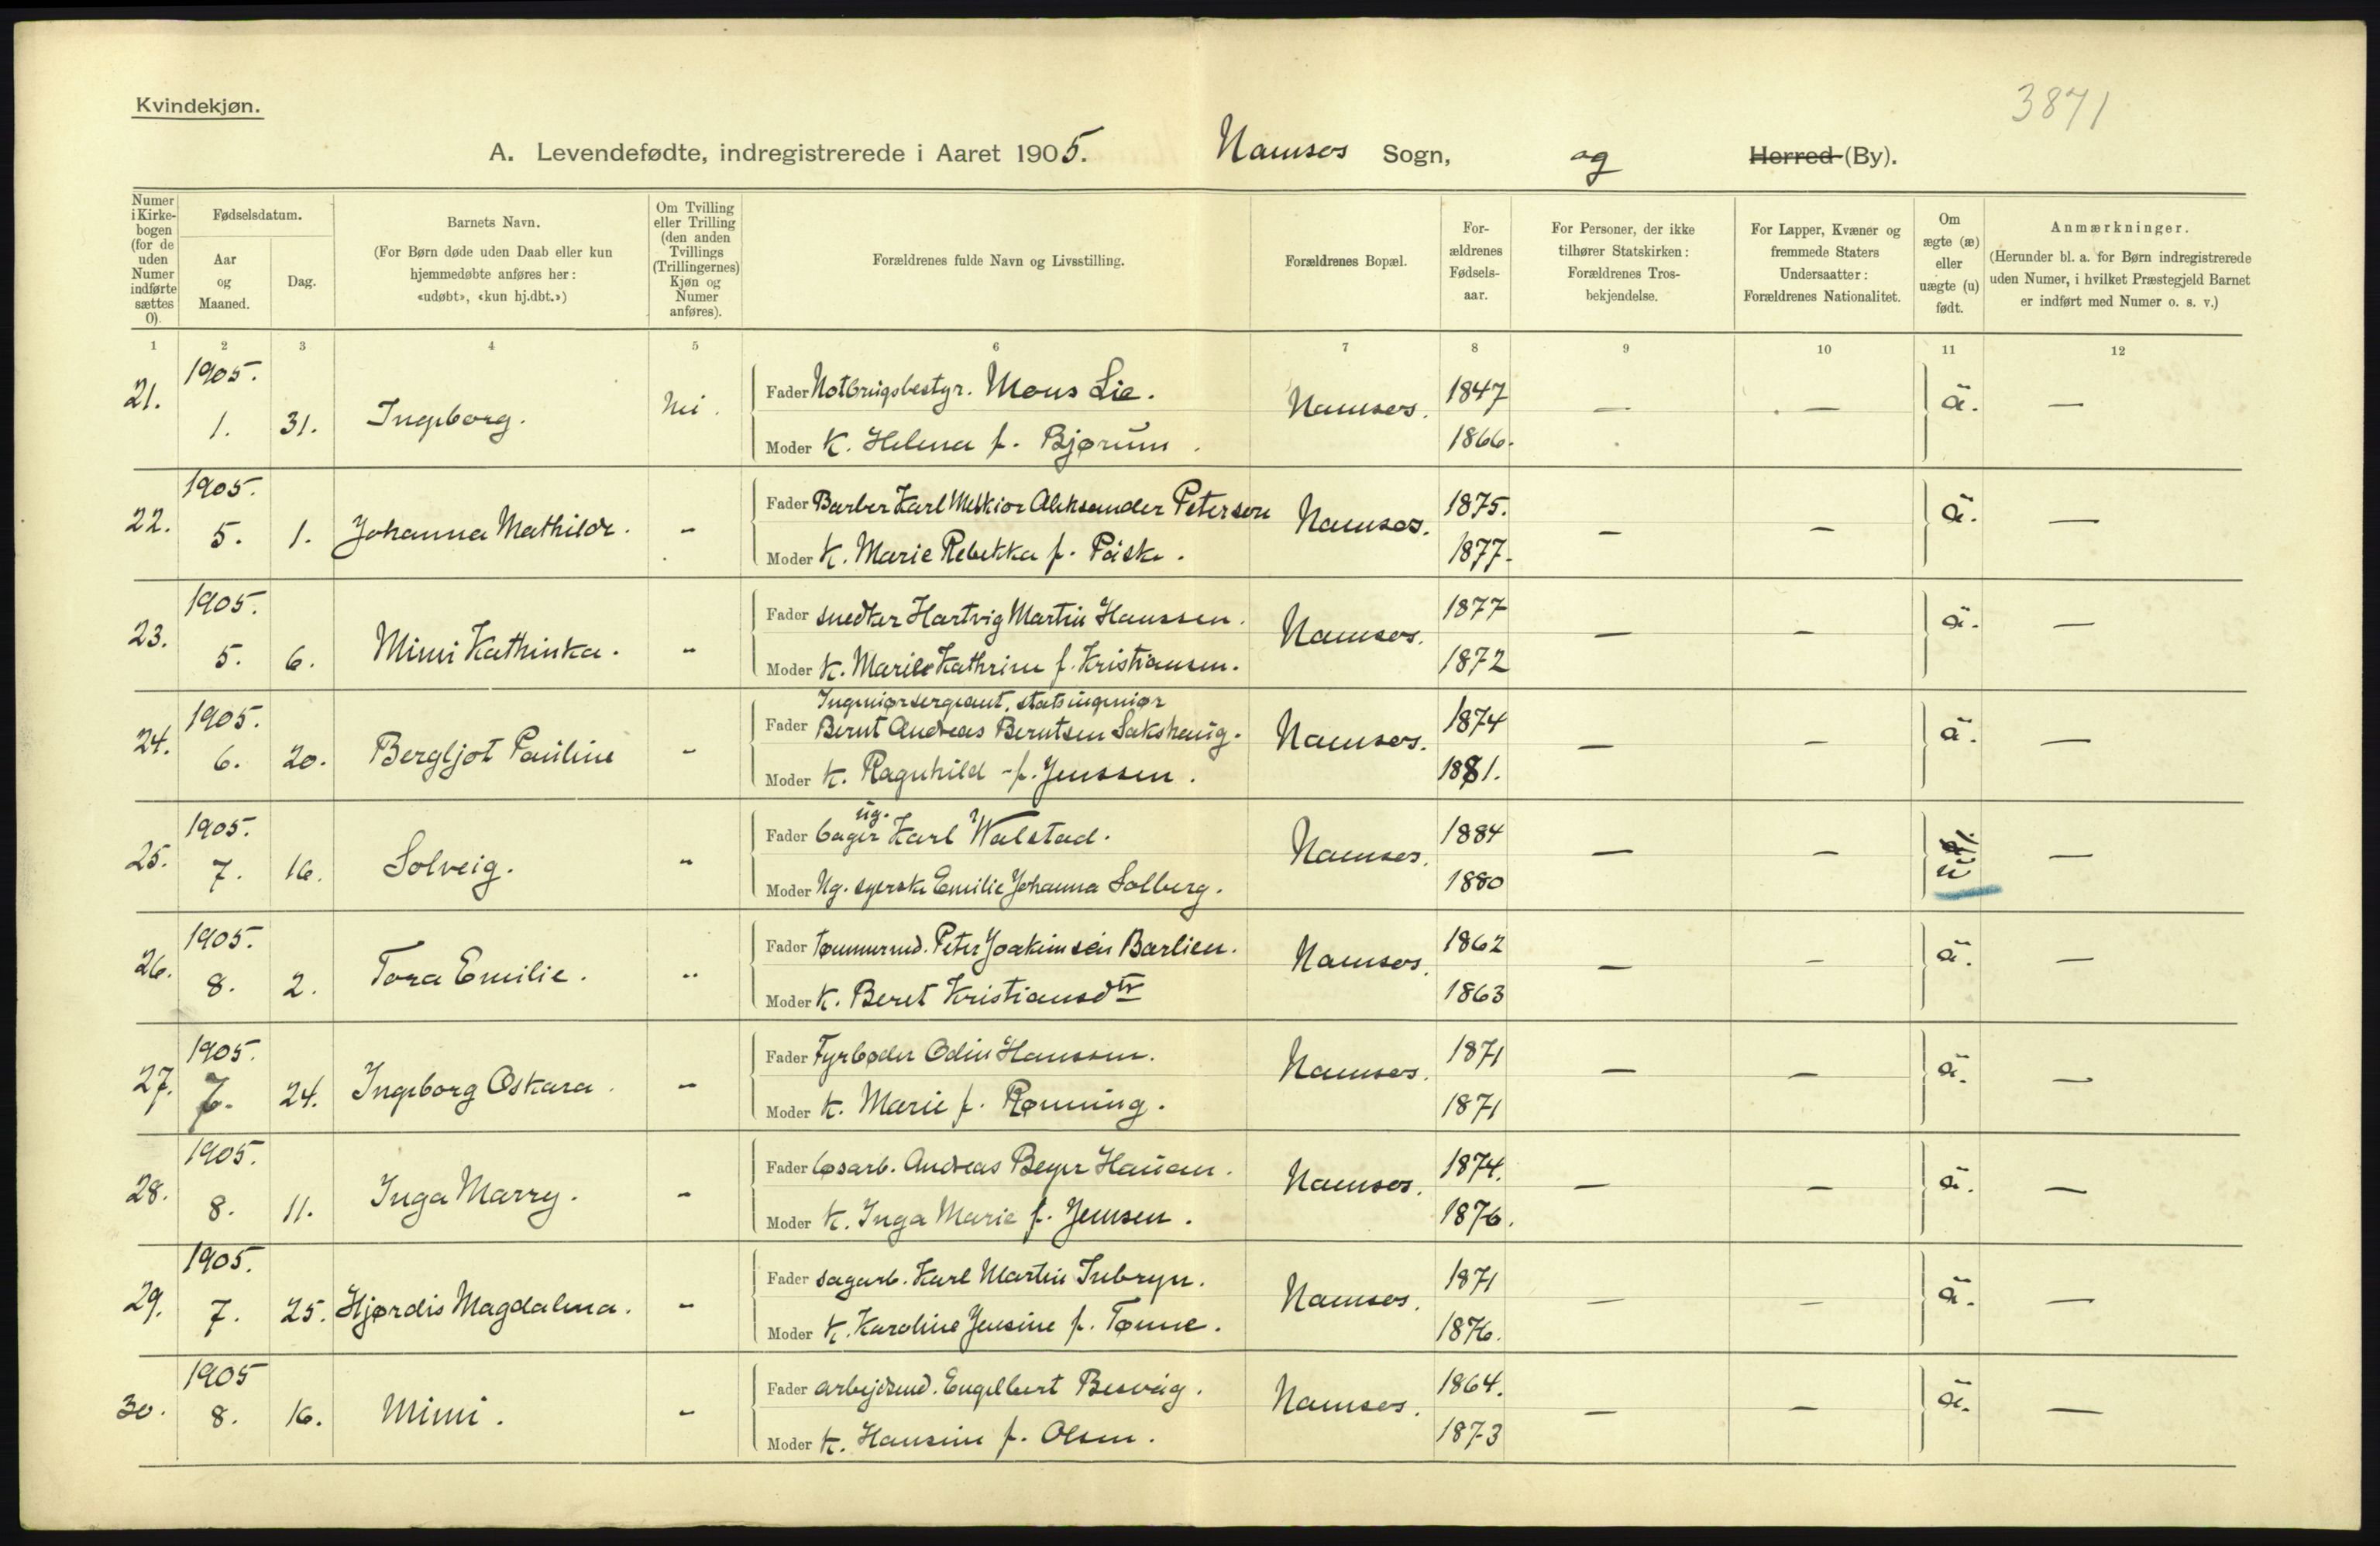 Kvindekjøn.
3871
A. Levendefødte, indregistrerede i Aaret 1905. Namsos Sogn, og Herred (By).
Numer i Kirkebogen (for de uden Numer indførte sættes 0).
Fødselsdatum.
Aar og Maaned.
Dag.
Barnets Navn.
(For Børn døde uden Daab eller kun hjemmedøbte anføres her: «udøbt», «kun hj.dbt.»)
Om Tvilling eller Trilling (den anden Tvillings (Trillingernes) Kjøn og Numer anføres).
Forældrenes fulde Navn og Livsstilling.
Forældrenes Bopæl.
Forældrenes Fødselsaar.
For Personer, der ikke tilhører Statskirken: Forældrenes Trosbekjendelse.
For Lapper, Kvæner og fremmede Staters Undersaatter: Forældrenes Nationalitet.
Om ægte (æ) eller uægte (u) født.
Anmærkninger.
(Herunder bl. a. for Børn indregistrerede uden Numer, i hvilket Præstegjeld Barnet er indført med Numer o. s. v.)
1 2 3 4 5 6 7 8 9 10 11 12
21. 1905. 1. 31. Ingeborg. Nei. Fader Notbrugsbestyr. Mons Lie. Namsos. 1847 — — ä. —
Moder K. Helena f. Bjørum. 1866.
22. 1905. 5. 1. Johanna Mathilde. - Fader Barber Karl Melkior Aleksander Petersen Namsos. 1875. — — ä. —
Moder K. Marie Rebekka f. Påske. 1877.
23. 1905. 5. 6. Mimi Kathinka. - Fader snedker Hartvig Martin Hanssen. Namsos. 1877 — — ä. —
Moder K. Marie Kathrine f. Kristiansen. 1872
Ingeniørsergeant, statsingeniør
24. 1905. 6. 20. Bergljot Pauline - Fader Bernt Andreas Berntsen Sakshaug. Namsos. 1874 — — ä. —
Moder K. Ragnhild f. Jenssen. 1881.
ug.
25. 1905. 7. 16. Solveig. - Fader bager Karl Walstad. Namsos. 1884 — — u —
Moder Ug. syerske Emilie Johanna Solberg. 1880
26. 1905. 8. 2. Tora Emilie. - Fader tømmermd. Peter Joakimsen Barlien. Namsos. 1862 — — ä. —
Moder K. Beret Kristiansdtr 1863
27. 1905. 7. 24. Ingeborg Oskara. - Fader Fyrbøder Odin Hanssen. Namsos. 1871 — — ä. —
Moder K. Marie f. Rønning. 1871
28. 1905. 8. 11. Inga Marry. - Fader løsarb. Andreas Beyer Hauan. Namsos. 1874. — — ä. —
Moder K. Inga Marie f. Jensen. 1876.
29. 1905. 7. 25. Hjørdis Magdalena. - Fader sagarb. Karl Martin Inbryn. Namsos. 1871 — — ä. —
Moder K. Karoline Jensine f. Tønne. 1876.
30. 1905 8. 16. Mimi. - Fader arbejdsmd. Engelbert Besvig. Namsos. 1864. — — ä. —
Moder K. Hansine f. Olsen. 1873